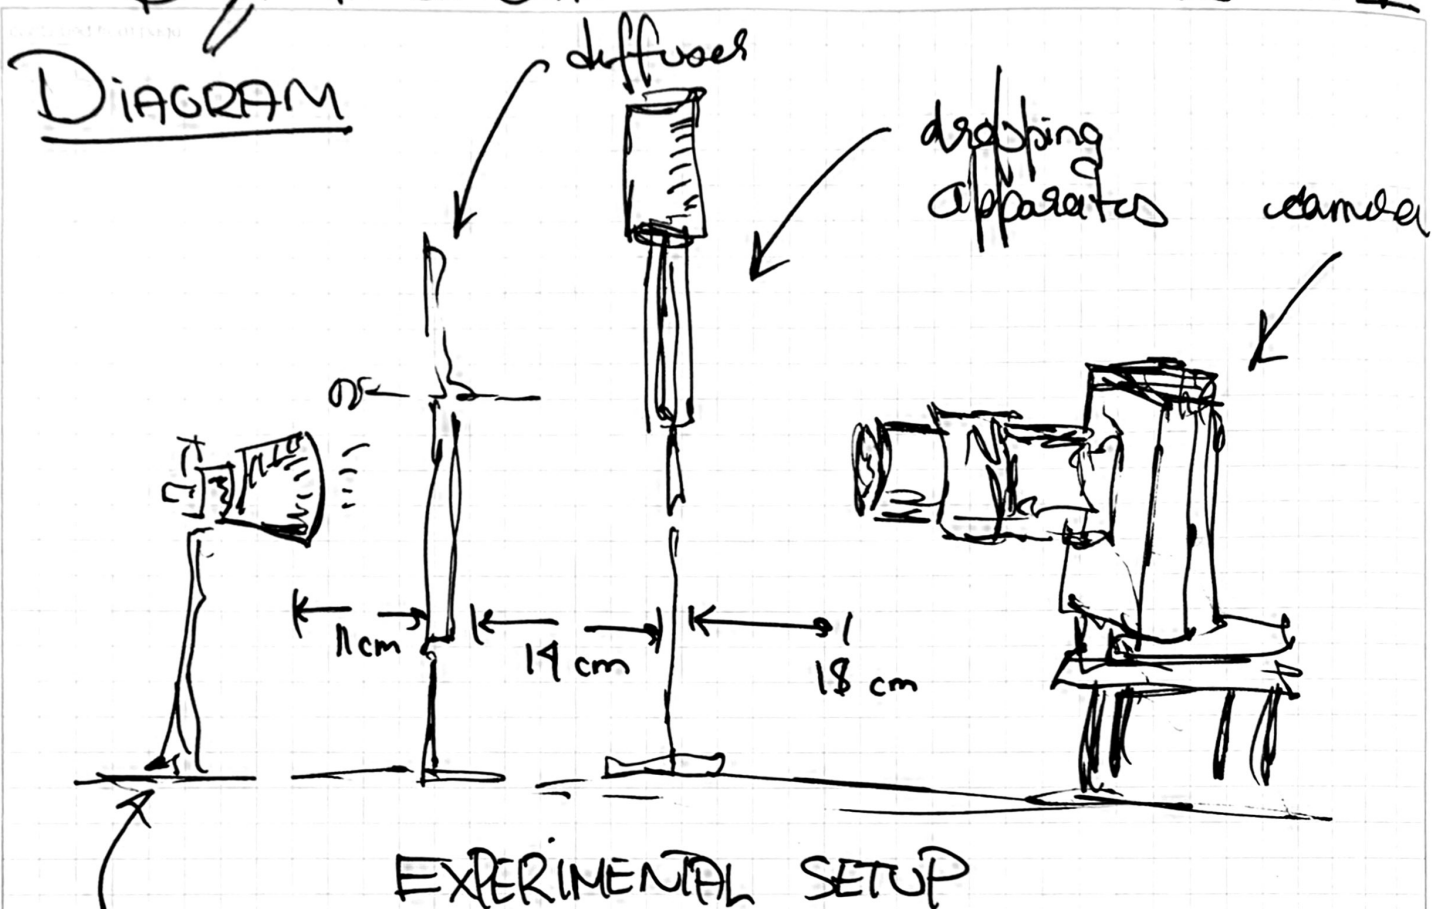 DIAGRAM
diffuser
dropping
apparatus
camera
11cm
14 cm
18 cm
EXPERIMENTAL SETUP